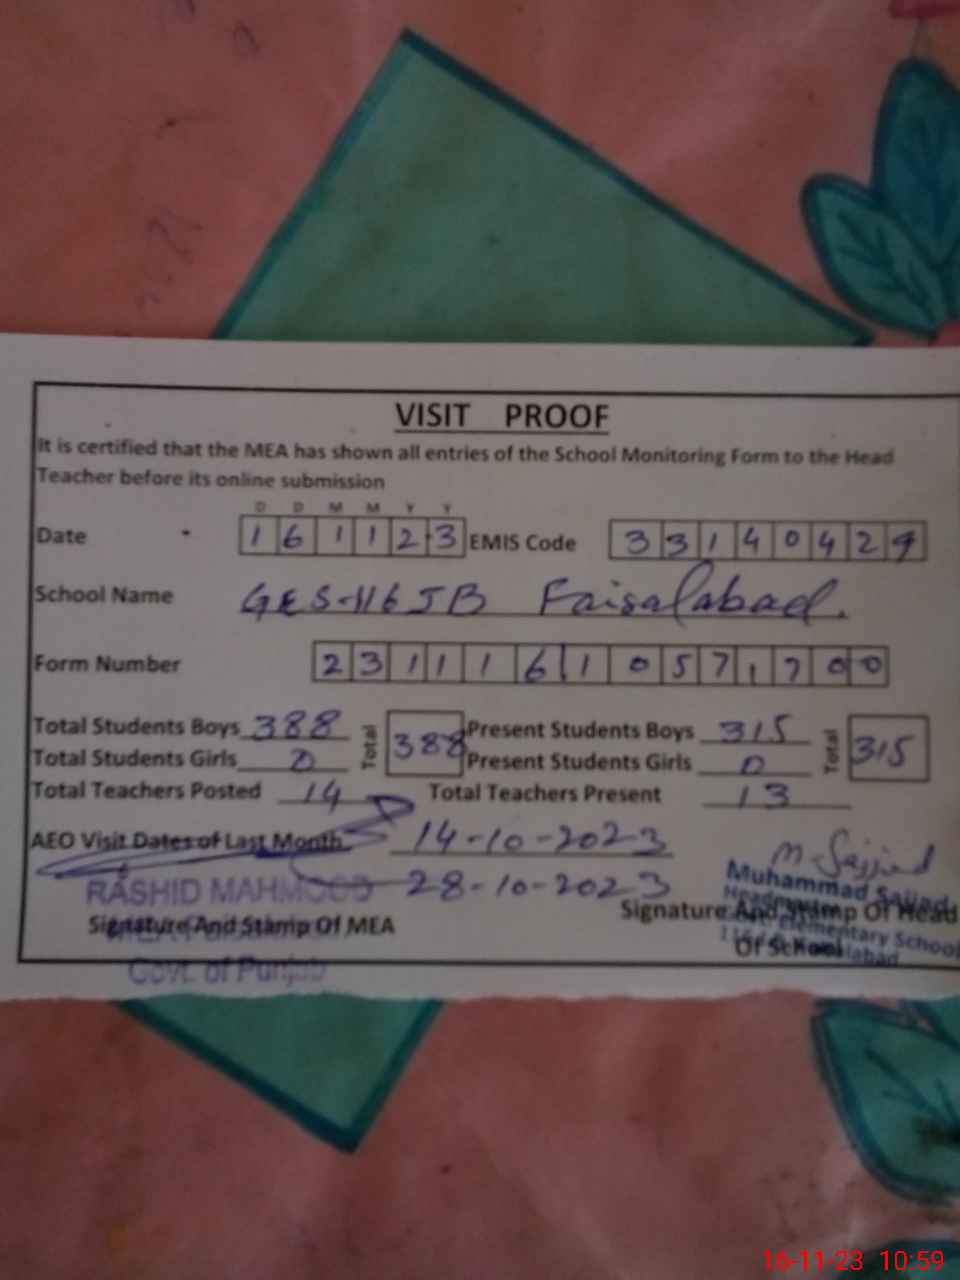 VISIT PROOF
It is certified that the MEA has shown all entries of the School Monitoring Form to the Head
Teacher before its online submission
D D M M Y Y
Date 1 6 1 1 2 3 EMIS Code 3 3 1 4 0 4 2 9
School Name GES-116 JB Faisalabad.
Form Number 2 3 1 1 1 6 1 0 5 7 1 7 0 0
Total Students Boys 388 Total 388 Present Students Boys 315 Total 315
Total Students Girls 0 Present Students Girls 0
Total Teachers Posted 14 Total Teachers Present 13
AEO Visit Dates of Last Month 14-10-2023
28-10-2023
M Sajjad
RASHID MAHMOOD
Govt. of Punjab
Signature And Stamp Of MEA
Muhammad Sajjad
Headmaster
Elementary School
Signature And Stamp Of Head
Of School
16-11-23 10:59